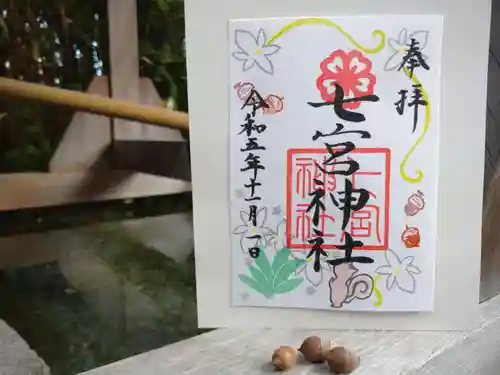 奉拝
七宮神社
七宮
神社
令和五年十一月一日